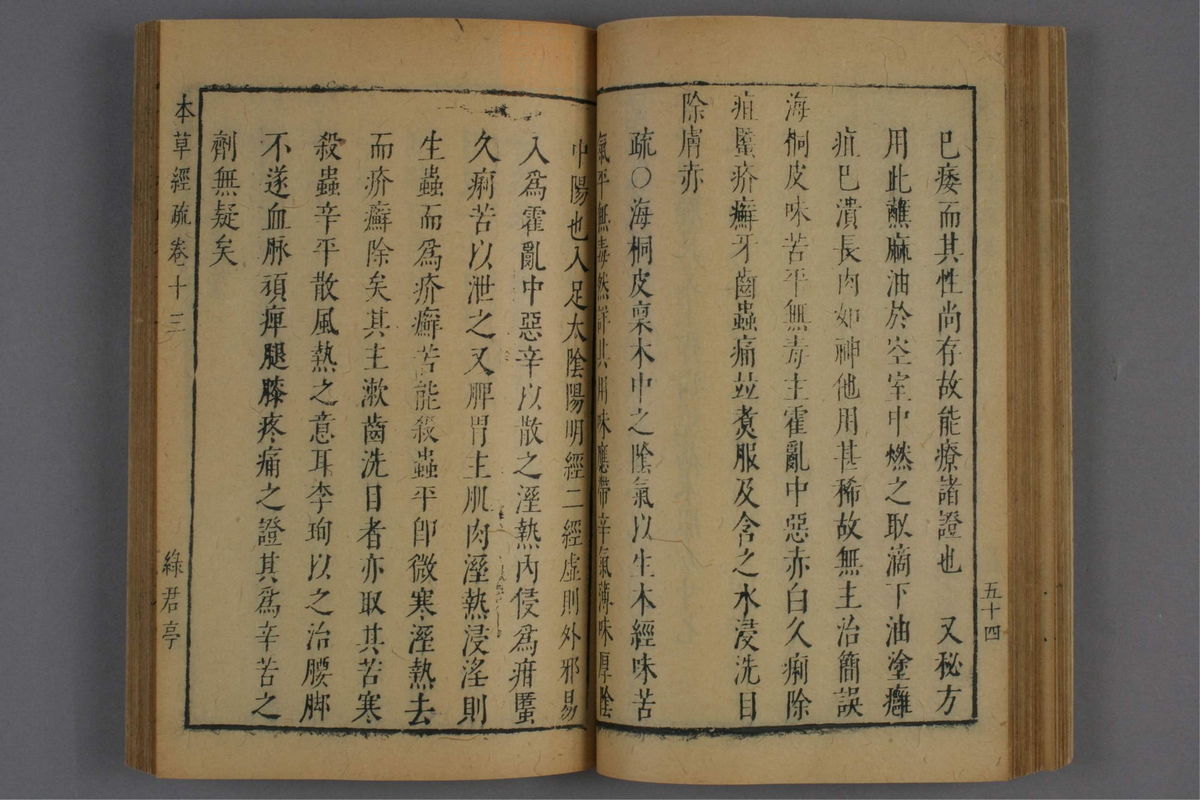 五十四
巳痿而其性尚存故能療諸證也 又秘方
用此蘸麻油於空室中燃之取滴下油塗癰
疽巳潰長肉如神他用甚稀故無主治簡誤
海桐皮味苦平無毒主霍亂中惡赤白久痢除
疳䘌疥癬牙齒蟲痛並煑服及含之水浸洗目
除膚赤
疏〇海桐皮稟木中之陰氣以生本經味苦
氣平無毒然詳其用味應帶辛氣薄味厚陰
中陽也入足太陰陽明經二經虛則外邪易
入爲霍亂中惡辛以散之溼熱內侵爲疳䘌
久痢苦以泄之又脾胃主肌肉溼熱浸淫則
生蟲而爲疥癬苦能殺蟲平卽微寒溼熱去
而疥癬除矣其主漱齒洗目者亦取其苦寒
殺蟲辛平散風熱之意耳李珣以之治腰脚
不遂血脉頑痺腿膝疼痛之證其爲辛苦之
劑無疑矣
本草經疏卷十三
綠君亭